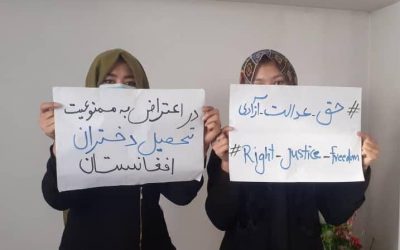 در اعتراض به ممنوعیت
تحصیل دختران
افغانستان
#حق-عدالت-آزادی
#Right-Justice-freedom